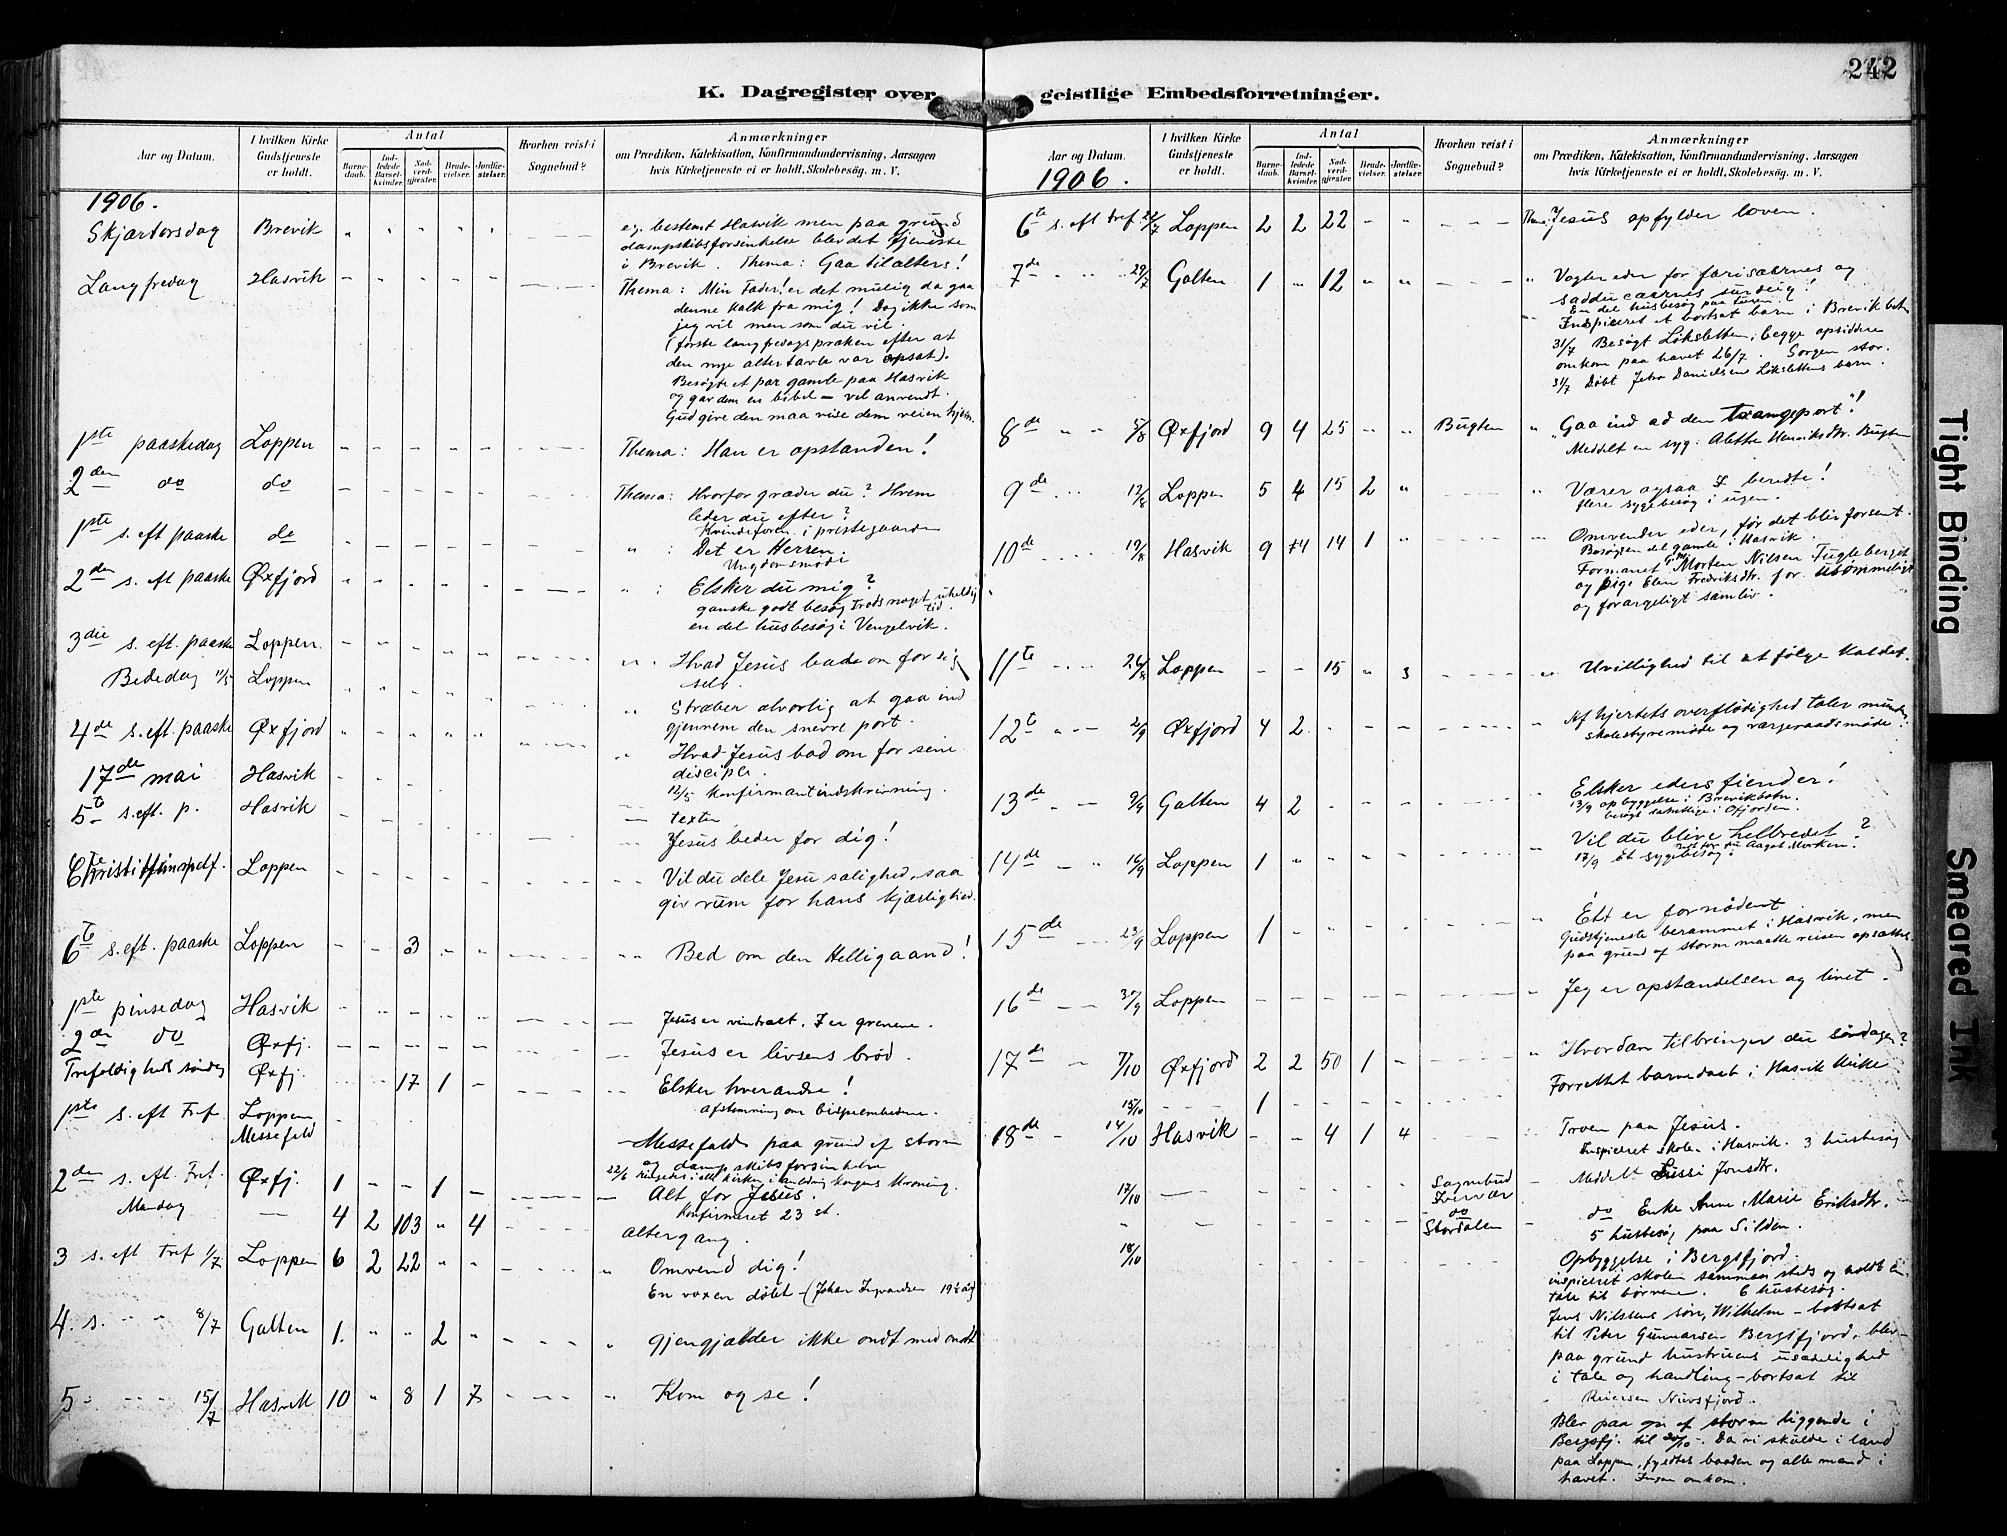 242
K. Dagregister over geistlige Embedsforretninger.
Aar og Datum.
I hvilken Kirke Gudstjeneste er holdt.
Antal
Barnedaab.
Indledede Barselkvinder.
Nadverdgjester.
Brudevielser.
Jordfæstelser.
Hvorhen reist i Sognebud?
Anmærkninger
om Prædiken, Katekisation, Konfirmandundervisning, Aarsagen
hvis Kirketjeneste ei er holdt, Skolebesøg. m. V.
1906.
Skjærtorsdag Brevik " " " " " eg. bestemt Hasvik men paa grund
dampskibsforsinkelse blev det tjeneste
i Brevik. Thema: Gaa til alters!
Langfredag Hasvik - - - - - Thema: Min Fader! er det mulig da gaa
denne kalk fra mig! Dog ikke som
jeg vil men som du vil.
(første langfredagspræken efter at
den nye altertavle var opsat).
Besøgte et par gamle paa Hasvik
og gav dem en bibel - vel anvendt.
Gud give den maa vise dem veien hjem.
1ste paaskedag Loppen - - - - - Thema: Han er opstanden!
2den do do - - - - - Thema: Hvorfor græder du? Hvem
leder du efter?
Kvindeforen. i prestegaarden
1ste s. eft paaske do - - - - - " : Det er Herren.
Ungdomsmøde
2den s. eft paaske Øxfjord - - - - - " : Elsker du mig?
ganske godt besøg trods noget uheldig
tid.
en del husbesøg i Vengelvik.
3die s. eft. paaske Loppen - - - - - " " Hvad Jesus bad om for sig
selv.
Bededag 11/5 Loppen " " " " " " Stræber alvorlig at gaa ind
gjennem den snevre port.
4de s. eft. paaske Øxfjord " " " " " " Hvad Jesus bad om for sine
disciple.
12/5 Konfirmantindskrivning.
17de mai Hasvik - - texten
5te s. eft. p. Hasvik - - - - - Jesus beder for dig!
Christi himmelf. Loppen - - - - - Vil du dele Jesu salighed, saa
giv rum for hans kjærlighed.
6te s. eft. paaske Loppen - - 3 - - " Bed om den Helligaand!
1ste pinsedag Hasvik - - - - - Jesus er vintræet. I er grenene.
2den do Øxfj. - - - - - Jesus er livsens brød.
Trefoldigheds søndag Øxfj. - - 17 1 - Elsker hverandre!
Afstemning om bispeembedene.
1ste s. eft Tref. Loppen
Messefald - Messefald paa grund af storm
og dampskibsforsinkelse
22/6 kirken i anledning kongens kroning.
2den s. eft. Tref. Øxfj. 1 - - 1 - Alt for Jesus.
Konfirmeret 23 st.
Mandag - 4 2 103 " 4 altergang.
3 s. eft Tref 1/7 Loppen 6 2 22 " " " Omvend dig!
En voxen døbt - (Johan 19½ år)
4. s. " " 8/7 Galten 1. " " 2 " " gjengjælder ikke ondt med ondt
5 " " 15/7 Hasvik 10 " 8 1 7 " Kom og se!
Aar og Datum.
I hvilken Kirke Gudstjeneste er holdt.
Antal
Barnedaab.
Indledede Barselkvinder.
Nadverdgjester.
Brudevielser.
Jordfæstelser.
Hvorhen reist i Sognebud?
Anmærkninger
om Prædiken, Katekisation, Konfirmandundervisning, Aarsagen
hvis Kirketjeneste ei er holdt, Skolebesøg. m. V.
1906.
6te s. eft tref. 22/7 Loppen 2 2 22 - " Thema: Jesus opfylder loven.
7de " " 29/7 Galten 1 " 12 " " " Vogter eder for farisæernes og
sadducæernes surdeig!
En del husbesøg paa turen.
Inspiceret et bortsat barn i Brevikbotn
31/7 Besøgt Løksletten; begge opsiddere
omkom paa havet 26/7. Sorgen stor.
31/7 Døbt Jetro Danielsen Løkslettens barn.
8de " " 5/8 Øxfjord 9 4 25 " " Bugten " "Gaa ind ad den trange port"!
Meddelt en syg. Alette Henriksdtr. Bugten
9de " " 12/8 Loppen 5 4 15 2 " " Værer ogsaa I beredte!
flere sygebesøg i ugen.
10de " " 19/8 Hasvik 9 4 14 1 " " Omvender eder, før det blir forsent.
Besøgt en del gamle i Hasvik.
Formanet Morten Nilsen Fugleberget
og pige Elen Fredriksdtr. for usømmeligt
og forargeligt samliv.
11te " " 26/8 Loppen - - 15 " 3 " Uvillighed til at følge kaldet.
12te " " 2/9 Øxfjord 4 2 - - - " Af hjertets overflødighed taler munden.
skolestyremøde og værgeraadsmøde
13de " " 9/9 Galten 4 2 " Elsker eders fiender!
13/9 opbyggelse i Brevikbotn.
14de " " 16/9 Loppen 1 " " " " " Vil du blive helbredet?
17/9 Et sygebesøg: Aagot Morken.
15de " 23/9 Loppen 1 " Ett er fornødent
Gudstjeneste berammet i Hasvik, men
paa grund af storm maatte reisen opsættes
16de " 30/9 Loppen - - - - - Jeg er opstandelsen og livet.
17de " 7/10 Øxfjord 2 2 50 1 - " Hvordan tilbringer du søndagen?
15/10 - 1 - - - - Forrettet barnedaab i Hasvik kirke
18de " 14/10 Hasvik - - 4 1 4 Troen paa Jesus.
Inspiceret skolen i Hasvik. 3 husbesøg
17/10 - Sognebud Meddelt Sussi Jonsdtr.
" do Stordalen do Enke Anne Marie Eriksdtr.
5 husbesøg paa Silden.
18/10 Opbyggelse i Bergsfjord.
inspiceret skolen sammensteds og holdt en
tale til børnene. 6 husbesøg.
Jens Nilsens søn, Wilhelm - bortsat
til Peter Gunnarsen Bergsfjord, blev
paa grund hustruens usædelighed
i tale og handling - bortsat til
Reiersen Nuvsfjord.
Blev paa gr. af storm liggende i
Bergsfj. til 20/10. Da vi skulde i land
paa Loppen, fyldtes baaden og alle mand i
havet. Ingen omkom.
Tight Binding
Smeared Ink